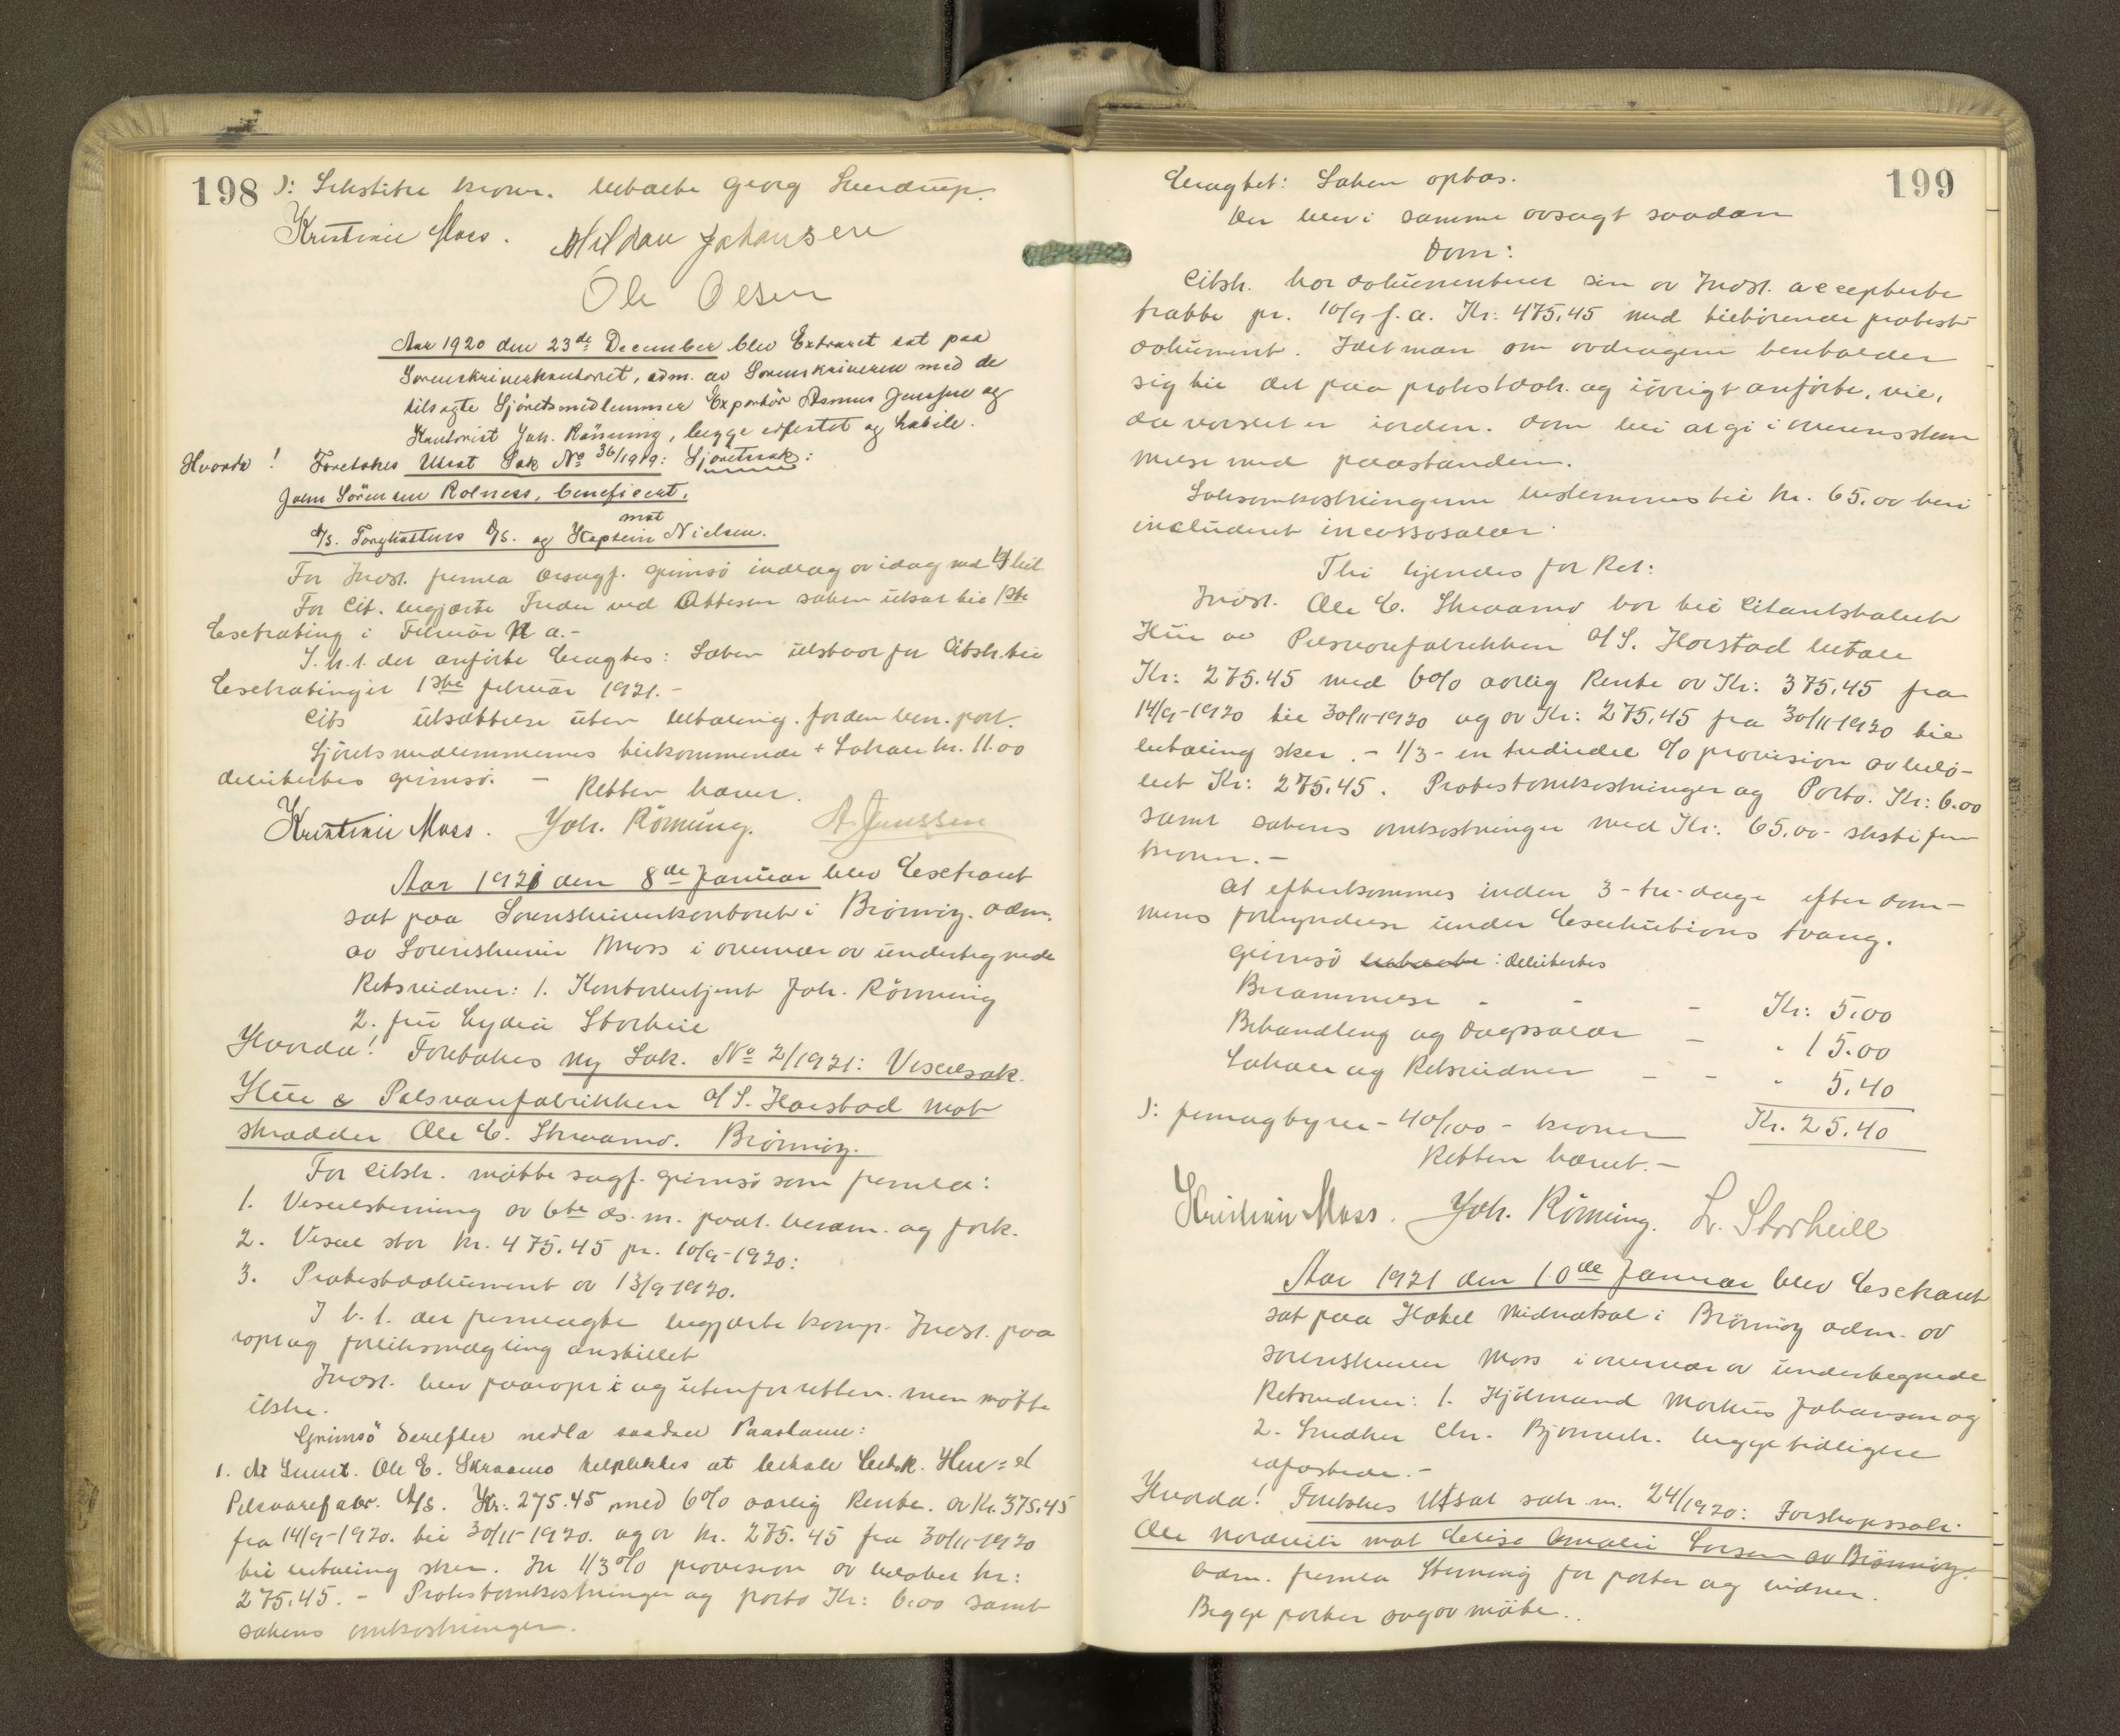 198
ɔ: Sekstitre kroner. betalte Georg Sverdrup.
Kristian Moss. Hildau Johansen
Ole Olsen
Aar 1920 den 23de December blev Extraret sat paa
Sorenskriverkontoret, adm. av Sorenskriveren med de
tilsagte Sjöretsmedlemmer Exportör Asmus Jenssen og
Kontorist Joh. Rönning, begge edfestet og habile.
Hvorda! Foretokes Utsat Sak No 36/1919: Sjöretssak:
John Sörensen Rolness, beneficert,
mot
D/S. Torghattens A/S. og Kaptein Nielsen.
For Indst. fremla Orsagf. Grimsö indlæg av idag med 4 bil.
For Cit. begjærte Frøken ved Ottesen saken utsat til 1ste
Exstrating i Februar N. a.-
I. h. t. det anförte Eragtes: Saken utstaar for Citsk. til
Exstratinget 1ste februar 1921.-
Cits utsættelse uten betaling. for den ben. part.
Sjöretsmedlemmernes tilkommende + Lokale kr. 11.00
debitertes Grimsö. - Retten hævet.
Kristian Moss. Joh. Rönning. A. Jenssen
Aar 1921 den 8de Januar blev Exstraret
sat paa Sorenskriverkontoret i Brönnöy. adm.
av Sorenskriver Moss i overvær av undertegnede
Retsvidner: 1. Kontorbetjent Joh. Rönning
2. fru Lydia Storheil
Hvorda! Foretokes ny Sak. No 2/1921: Vexelsak.
Hui & Pelsvarefabrikken A/S. Harstad mot
skrædder Ole E. Skraamo. Brönnöy.
For Citsk. mötte sagf. Grimsö som fremla:
1. Vexelstevning av 6te ds. m. paat. beram. og fork.
2. Vexel stor kr. 475.45 pr. 10/9-1920:
3. Protestdokument av 13/9 1920.
I h. t. det fremlagte begjærte komp. Indst. paa
ropt og forliksmægling anstillet
Indst. blev paaropt i og utenfor retten. men mötte
ikke.
Grimsö derefter nedla saadan Paastand:
1. At Innst. Ole E. Skraamo tilpliktes at betale Citsk. Hui & 
Pelsvarefabr. A/S. Kr: 275.45 med 6% aarlig Rente. av Kr. 375.45
fra 14/9-1920. til 30/11-1920. og av kr. 275.45 fra 30/11-1920
til betaling sker. In 1/3% provision av belöbet kr:
275.45. - Protestomkostninger og porto Kr: 6.00 samt
sakens omkostninger.
199
Eragtet: Saken optas.
Der blev i samme avsagt saadan
Dom:
Citsk. har dokumentert sin av Indst. accepterte
tratte pr. 10/9 f. a. Kr: 475.45 med tilhörende protest
dokument. Idet man om avdragene henholder
sig til det paa protestdok. og iövrigt anförte, vil,
da varslet er iorden. dom bli at gi i overensstem
melse med paastanden.
Saksomkostningerne bestemmes til kr. 65.00 heri
includert incassosalær.
Thi kjendes for Ret:
Indst. Ole E. Skraamo bör til Citantskabet
Hui av Pelsvarefabrikken A/S. Harstad betale
Kr: 275.45 med 6% aarlig Rente av Kr: 375.45 fra
14/9-1920 til 30/11-1920 og av Kr: 275.45 fra 30/11-1920 til
betaling sker. - 1/3 - en trediedel % provision av belö-
bet Kr: 275.45. Protestomkostninger og Porto. Kr: 6.00
samt sakens omkostninger med Kr: 65.00 - seksti fem
kroner.-
At efterkommes inden 3-tre-dage efter dom-
mens forkyndelse under Exekutions tvang.
Grimsö betalte: debitertes
Berammelse - - - Kr: 5.00
Behandling og Dagssalær - " 15.00
Lokale og Retsvidner - - " 5.40
ɔ: femogtyve - 40/100 - kroner Kr. 25.40
Retten hævet.-
Kristian Moss. Joh. Rönning. L. Storheill
Aar 1921 den 10de Januar blev Exstraret
sat paa Hotel Midnatsol i Brönnöy adm. av
sorenskriver Moss i overvær av undertegnede
Retsvidner: 1. Hjelmand Markus Johansen og
2. Snedker Chr. Bjornvik. begge tidligere
edfæstede.-
Hvorda! Foretokes Utsat sak nr. 24/1920: Farskapssak:
Ole Nordvik mot Elise Amalie Larsen av Brönnöy.
Adm. fremla Stevning for parter og vidner.
Begge parter avgav möte..